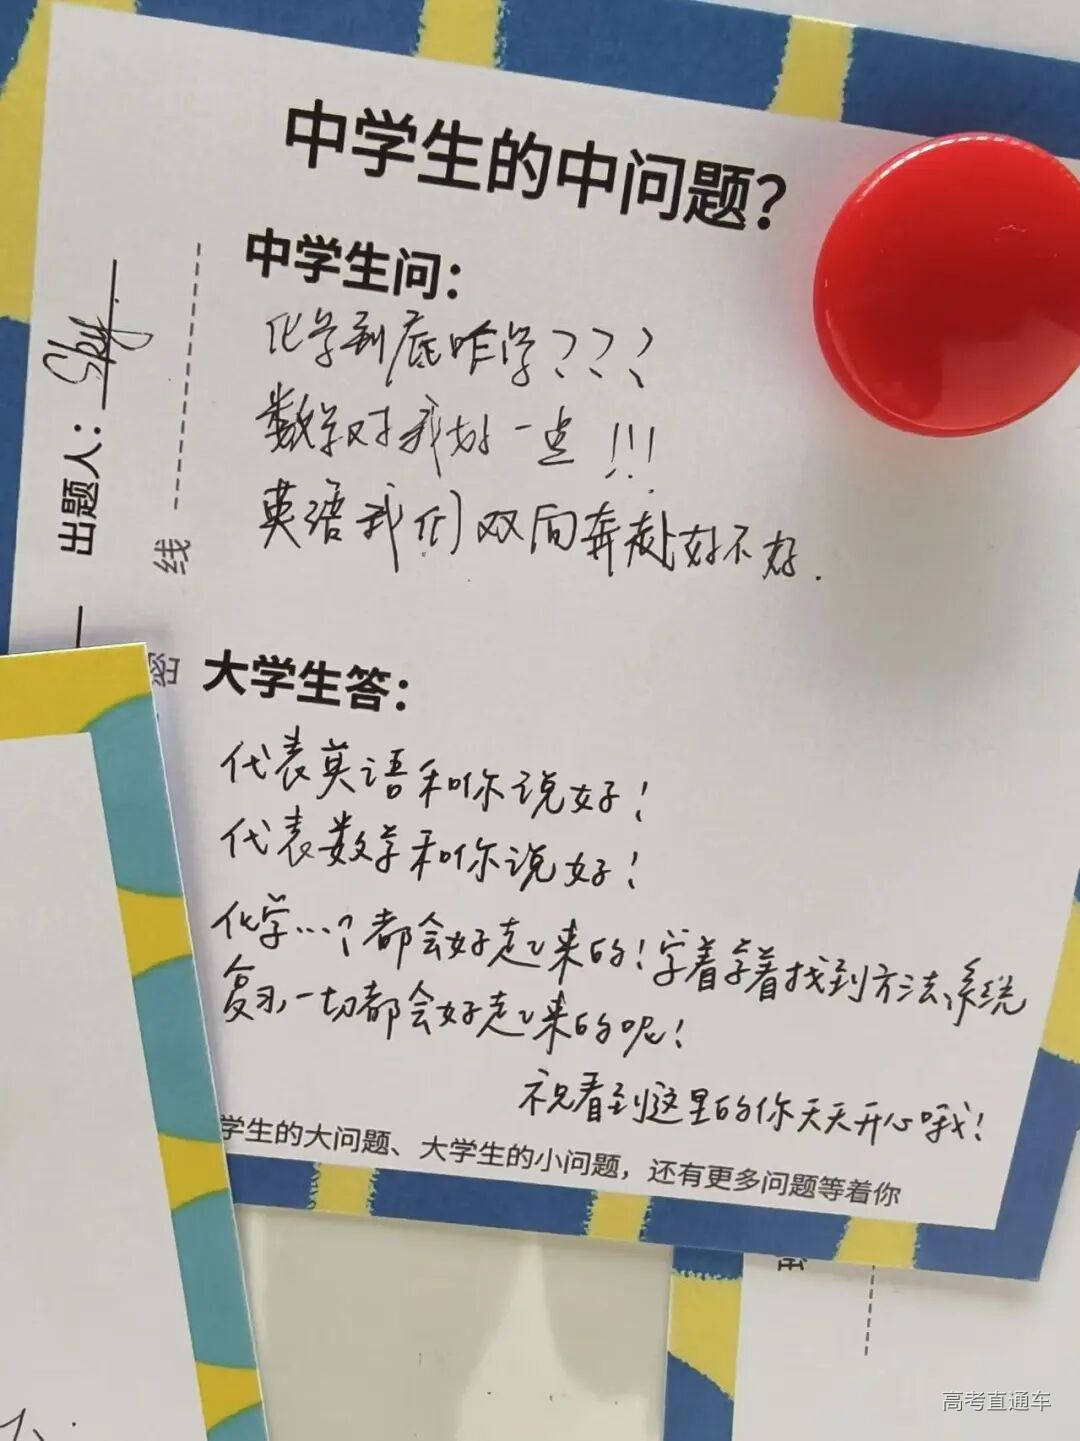 中学生的中问题?
中学生问：
化学到底咋学???
数学对我好一点!!!
英语我们双向奔赴好不好.
出题人：Sky
线
密
大学生答：
代表英语和你说好!
代表数学和你说好!
化学…?都会好起来的!学着学着找到方法、系统
复习一切都会好起来的呢!
祝看到这里的你天天开心哦!
学生的大问题、大学生的小问题，还有更多问题等着你
密
高考直通车